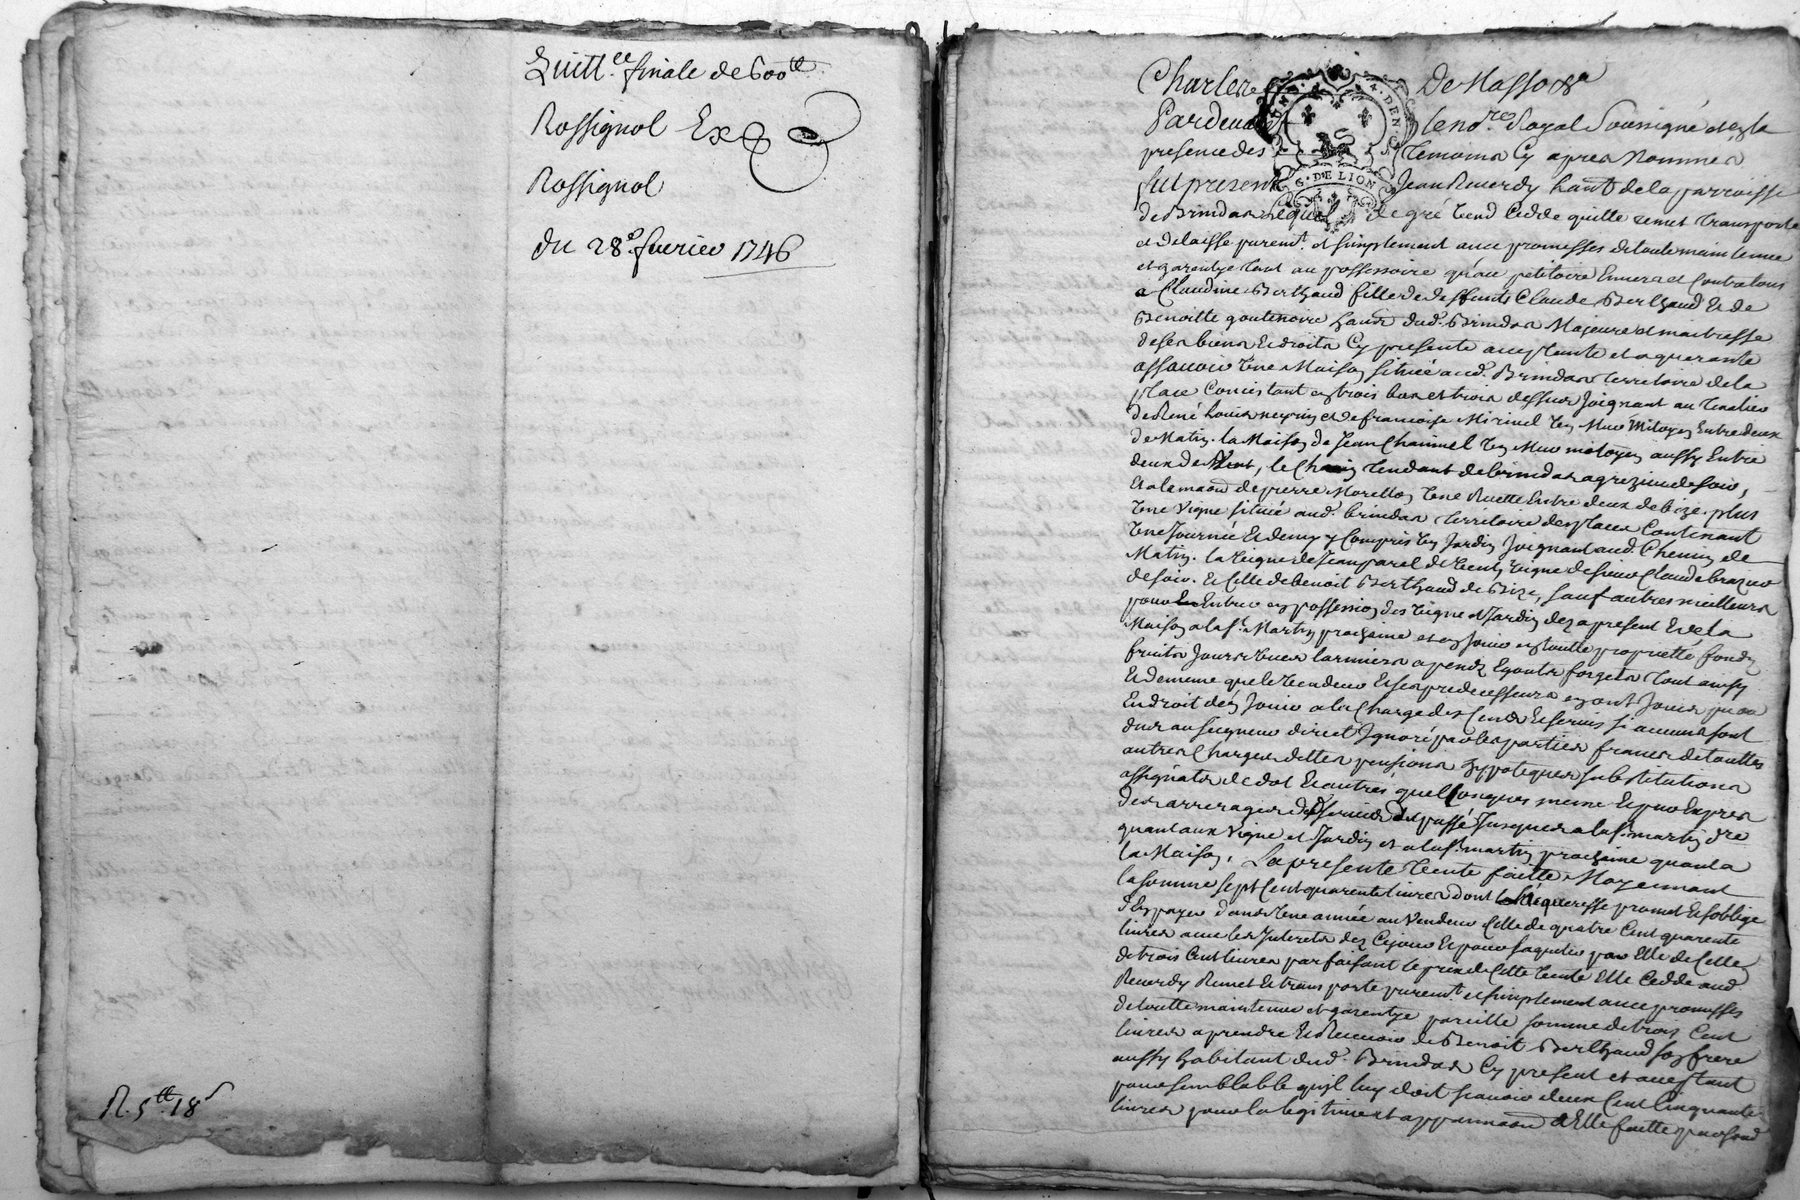 Quitt.ce finale de 600tt
Rossignol Exp
Rossignol
du 28e. fuvrier 1746
R. 5tt. 18s
Charlere De Masso &a
GEN. DE LION
Pardevant le no.re Royal Soussigné et en la
presence des temoins Cy apres Nommés
fut present Jean Reverdy habt. de la parroisse
de Brindas lequel de gré Vend Cedde quitte remet transporte
et delaisse purem.t et simplement avec promesses de toute maintenue
et garentye tant au possessoire qu'au petitoire Envers et Contre tous
a Claudine Berthaud fille de deffunts Claude Berthaud Et de
Benoitte goutenoire habt. dud. Brindas Majeure et maitresse
de ses biens Et droits Cy presente acceptante et aquerante
assavoir Une Maison située aud. Brindas territoire de la
place Concistant en trois bas et trois dessus Joignant au tenalier
de René Louis neyrin et de francoise Mirivel Un Mur Mitoyen Entre deux
de Matin. la Maison de Jean Chainnel Un Mur mitoyen aussy Entre
deux de Vent, le Chemin tendant de brindas a grezieu de soir,
Et la maon de pierre Morellon Une Ruette Entre deux de bize. plus
Une Vigne située aud. brindas territoire des places Contenant
Une Journée Et demy y Compris Un Jardin Joignant aud. Chemin de
Matin. la Vigne de Jean parel de Vent, Vigne de sieur Claude brazier
de soir. Et Celle de benoit Berthaud de Bize, sauf autres meilleurs
pour Entrer en possession des Vigne et Jardin dez a present Et de la
Maison a la St. Martin prochaine et en Jouir en toutte proprietté fondz
fruits Jours Vues larmiers apendz Egouts forgets tout ainsy
Et de meme que le Vendeur Et ses predecesseurs en ont Jouis pu ou
En droit d'en Jouir a la Charge des Cens Et servis si aucuns sont
dus au seigneur direct Ignoré par les parties francs de touttes
autres Charges dettes pensions hypoteques substitutions
assignats de dot Et autres quelconques meme Et pour Expres
des arrerages desd. servis du passé Jusques a la St. martin dre
quant aux Vigne et Jardin et a la St. martin prochaine quant a
la Maison. La presente Vente faitte Moyennant
la somme sept Cent quarente livres dont l'aqueresse promet Et s'obblige
d'En payer dans Une année au Vendeur Celle de quatre Cent quarente
livres avec les Interets dez Cejour Et pour s'aquitter par Elle de Celle
de trois Cent livres parfaisant le prix de Cette Vente Elle Cedde aud
Reverdy Remet Et transporte purem.t et simplement avec promesses
de toutte maintenue et garentye pareille somme de trois Cent
livres a prendre Et Recevoir de Benoit Berthaud son frere
aussy habitant dud. Brindas Cy present et acceptant
pour semblable qu'il luy doit scavoir deux Cent Cinquante
livres pour la legitime et appannaon a Elle faitte par feud